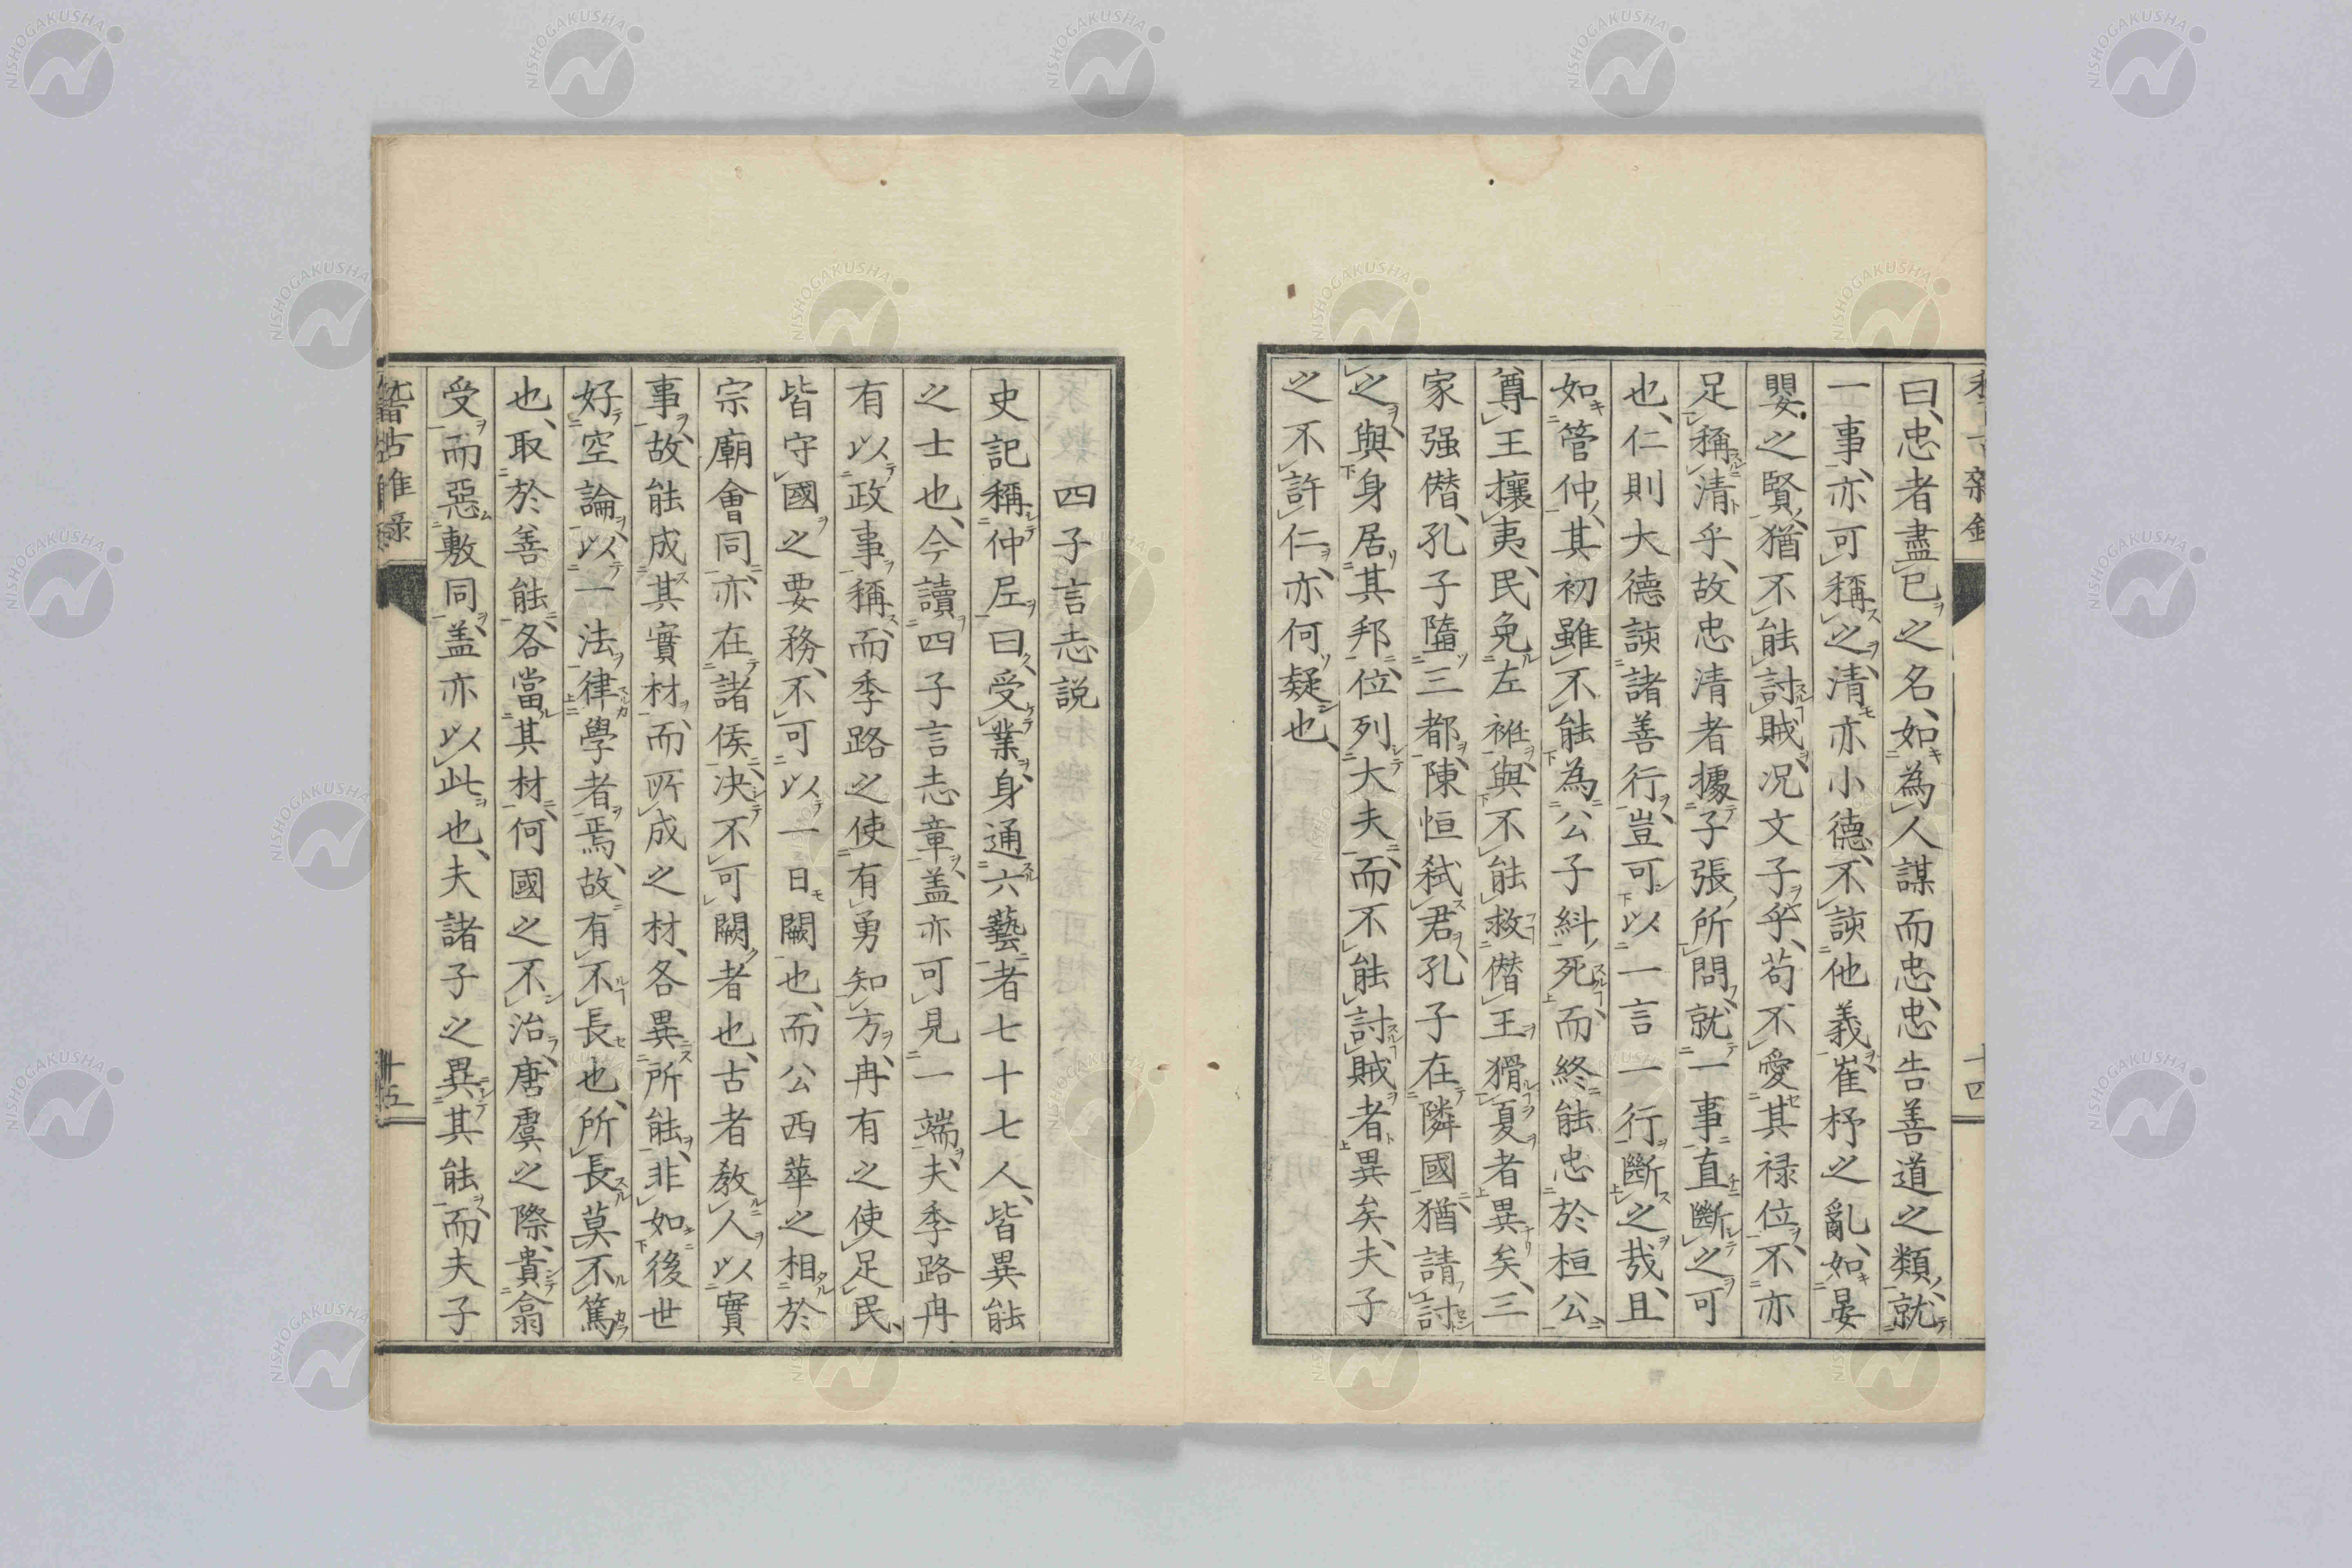 曰、忠者盡己之名、如為人謀而忠、忠告善道之類、就
一事、亦可稱之、清亦小德、不該他義、崔杼之亂、如晏
嬰之賢、猶不能討賊、况文子乎、苟不愛其禄位、不亦
足稱清乎、故忠清者據子張所問、就一事直斷之可
也、仁則大德該諸善行、豈可以一言一行斷之哉、且
如管仲、其初雖不能為公子糾死、而終能忠於桓公
尊王攘夷、民免左袵、與不能救僭王猾夏者異矣、三
家强僭、孔子隳三都、陳恒弑君、孔子在隣國猶請討
之、與身居其邦、位列大夫、而不能討賊者異矣、夫子
之不許仁、亦何疑也、
十四
四子言志説
史記稱仲尼曰、受業身通六藝者七十七人、皆異能
之士也、今讀四子言志章、盖亦可見一端、夫季路冉
有以政事稱、而季路之使有勇知方、冉有之使足民、
皆守國之要務、不可以一日闕也、而公西華之相於
宗廟會同、亦在諸侯、决不可闕者也、古者教人以實
事、故能成其實材、而所成之材、各異所能、非如後世
好空論、以一法律學者焉、故有不長也、所長莫不篤
也、取於善能、各當其材、何國之不治、唐虞之際、貴翕
受而惡敷同、盖亦以此也、夫諸子之異其能、而夫子
稽古雜録
十五